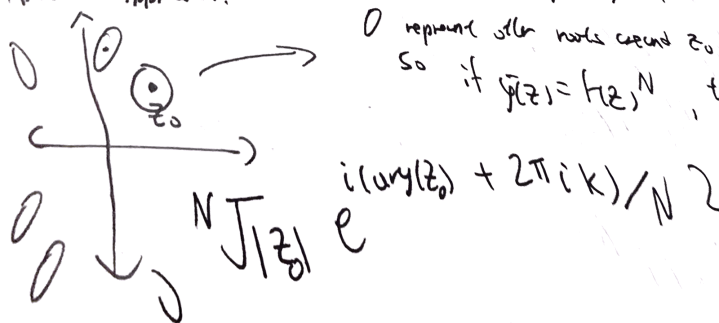 0 represent other roots around z₀
So if g(z) = f(z)^N ,
z₀
^N√|z₀| e^{i(arg(z₀) + 2πik)/N}